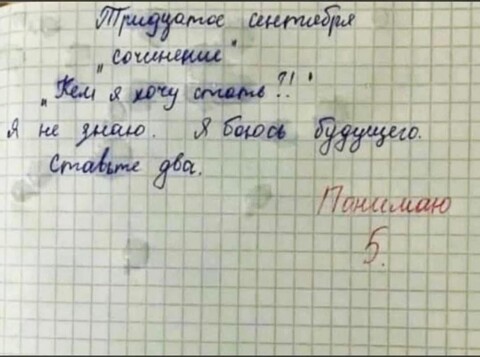 Тридцатое сентября
„сочинение"
„Кем я хочу стать?!"
Я не знаю. Я боюсь будущего.
Ставьте два.
Понимаю
5.